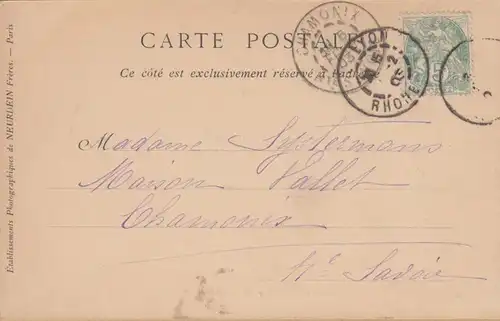 CARTE POSTALE
Ce côté est exclusivement réservé à l'adresse
CHAMONIX
LYON
RHONE
Madame Systermans
Maison Vallet
Chamonix
Hte Savoie
Etablissements Photographiques de NEURDEIN Frères. — Paris